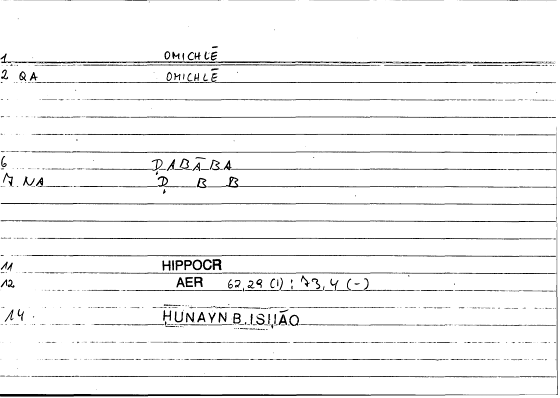 1 OMICHLĒ
2 QA OMICHLĒ
6 ḌABĀBA
7 NA Ḍ B B
11 HIPPOCR
12 AER 62,29 (1) ; 73,4 (-)
14. ḤUNAYN B. ISḤĀQ